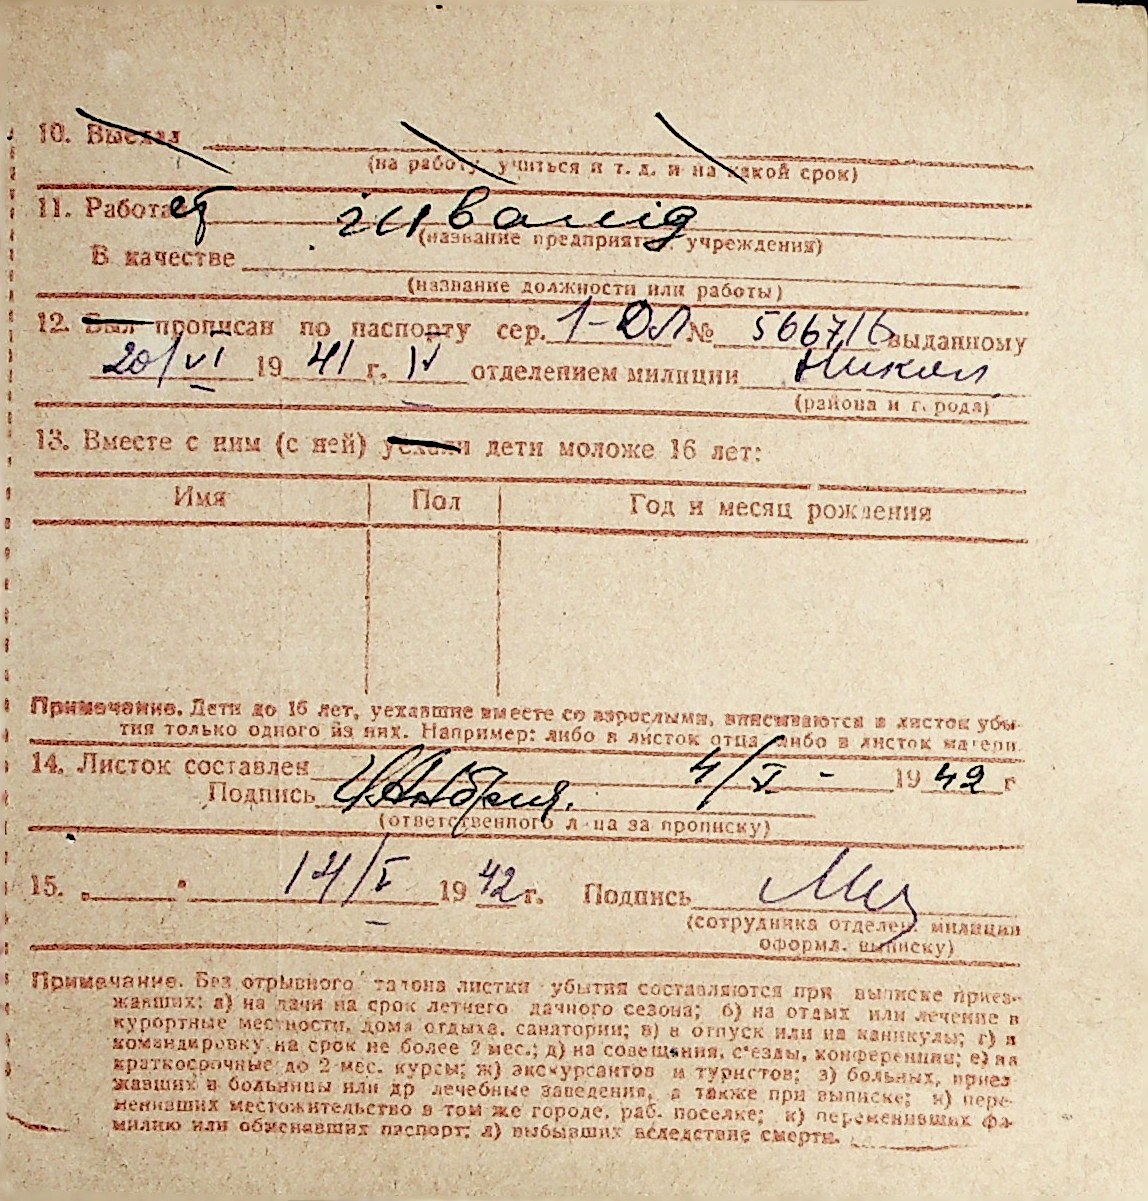 10. Выехал
(на работу, учиться и т. д. и на какой срок)
11. Работает инвалид
(название предприят. учреждения)
В качестве
(название должности или работы)
12. Был прописан по паспорту сер. 1-ДЛ № 566716 выданному
20/VI 1941 г. IV отделением милиции Никол
(района и города)
13. Вместе с ним (с ней) уехали дети моложе 16 лет:
Имя Пол Год и месяц рождения
Примечание. Дети до 16 лет, уехавшие вместе со взрослыми, вписываются в листок убы-
тия только одного из них. Например: либо в листок отца либо в листок матери.
14. Листок составлен 4/I - 1942 г
Подпись
(ответственного лица за прописку)
15. „ " 14/I 1942 г. Подпись
(сотрудника отделен. милиции
оформл. выписку)
Примечание. Без отрывного талона листки убытия составляются при выписке приез-
жавших: а) на дачи на срок летнего дачного сезона; б) на отдых или лечение в
курортные местности, дома отдыха, санатории; в) в отпуск или на каникулы; г) в
командировку на срок не более 2 мес.; д) на совещания, с'езды, конференции; е) на
краткосрочные до 2 мес. курсы; ж) экскурсантов и туристов; з) больных, приез-
жавших в больницы или др лечебные заведения, а также при выписке; и) пере-
менивших местожительство в том же городе, раб. поселке; к) переменивших фа-
милию или обменявших паспорт; л) выбывших вследствие смерти.